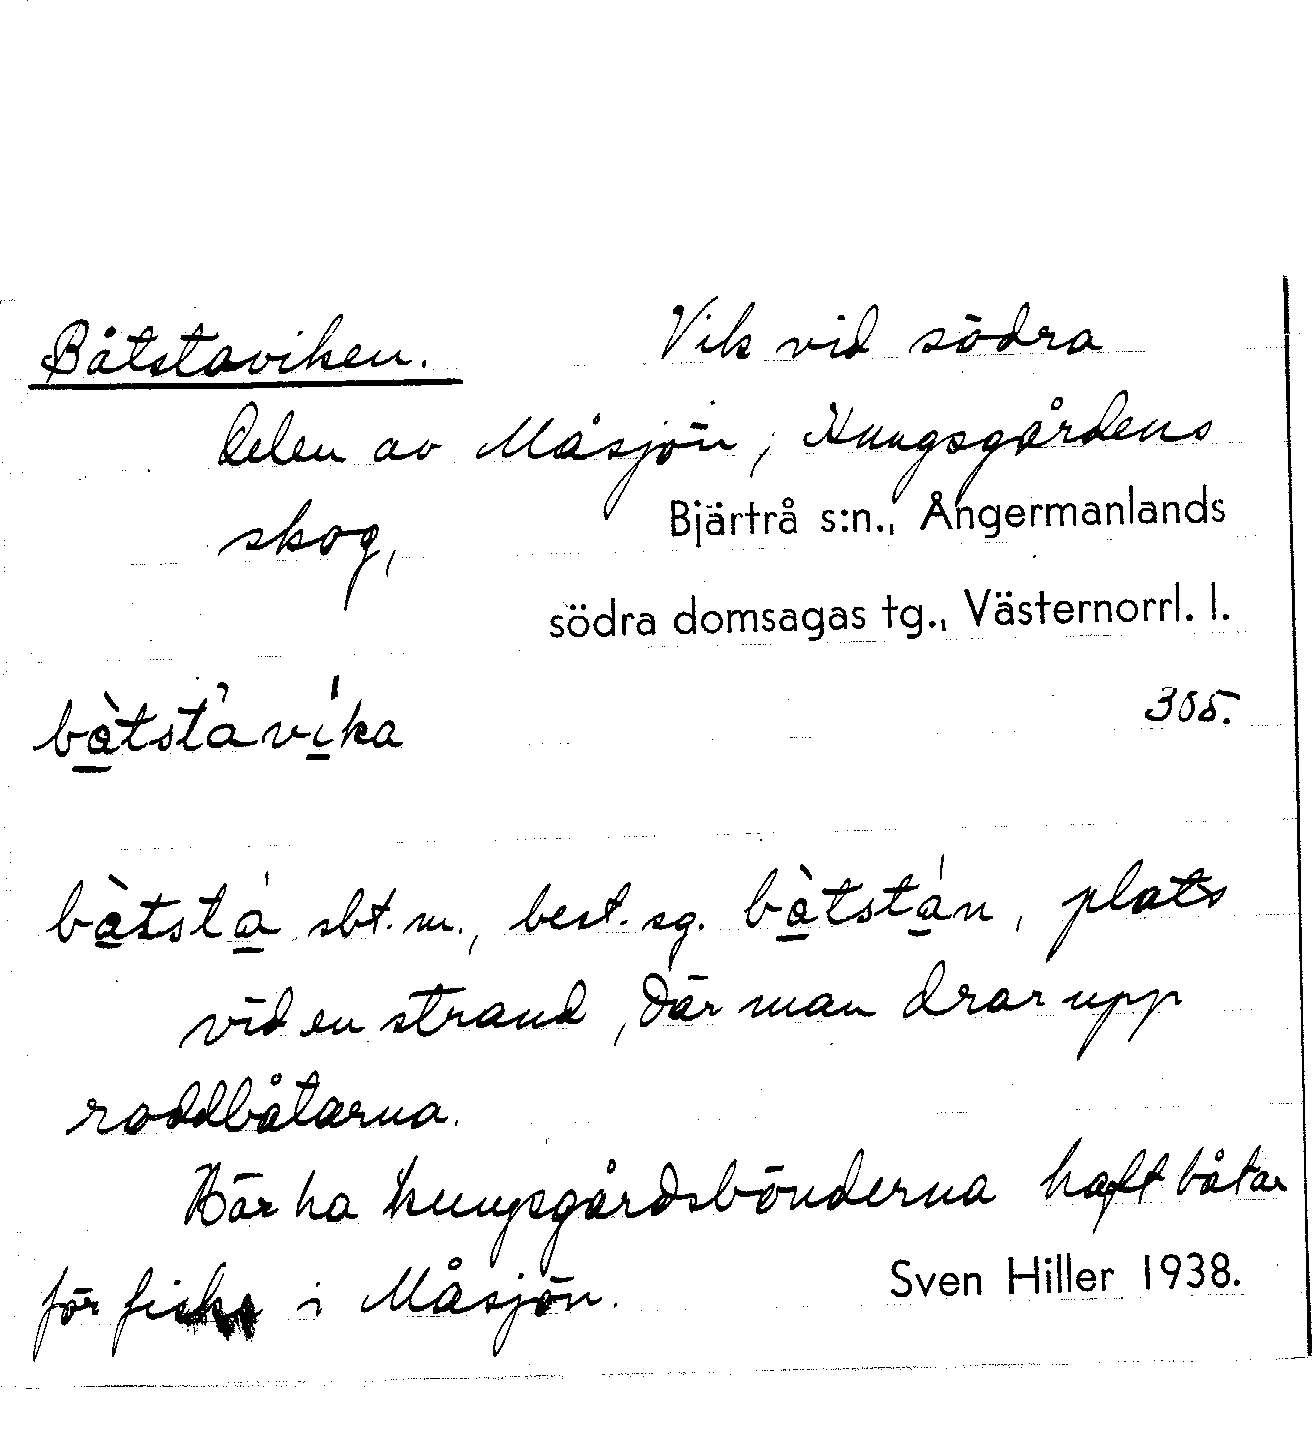 Båtstaviken. Vik vid södra
delen av Måsjön, Kungsgårdens
skog, Bjärtrå s:n., Ångermanlands
södra domsagas tg., Västernorrl. l.
bàtstavíka 305.
bàtstá sbt. m., best. sg. bàtstán, plats
vid en strand, där man drar upp
roddbåtarna.
Här ha kungsgårdsbönderna haft båtar
för fiske i Måsjön. Sven Hiller 1938.